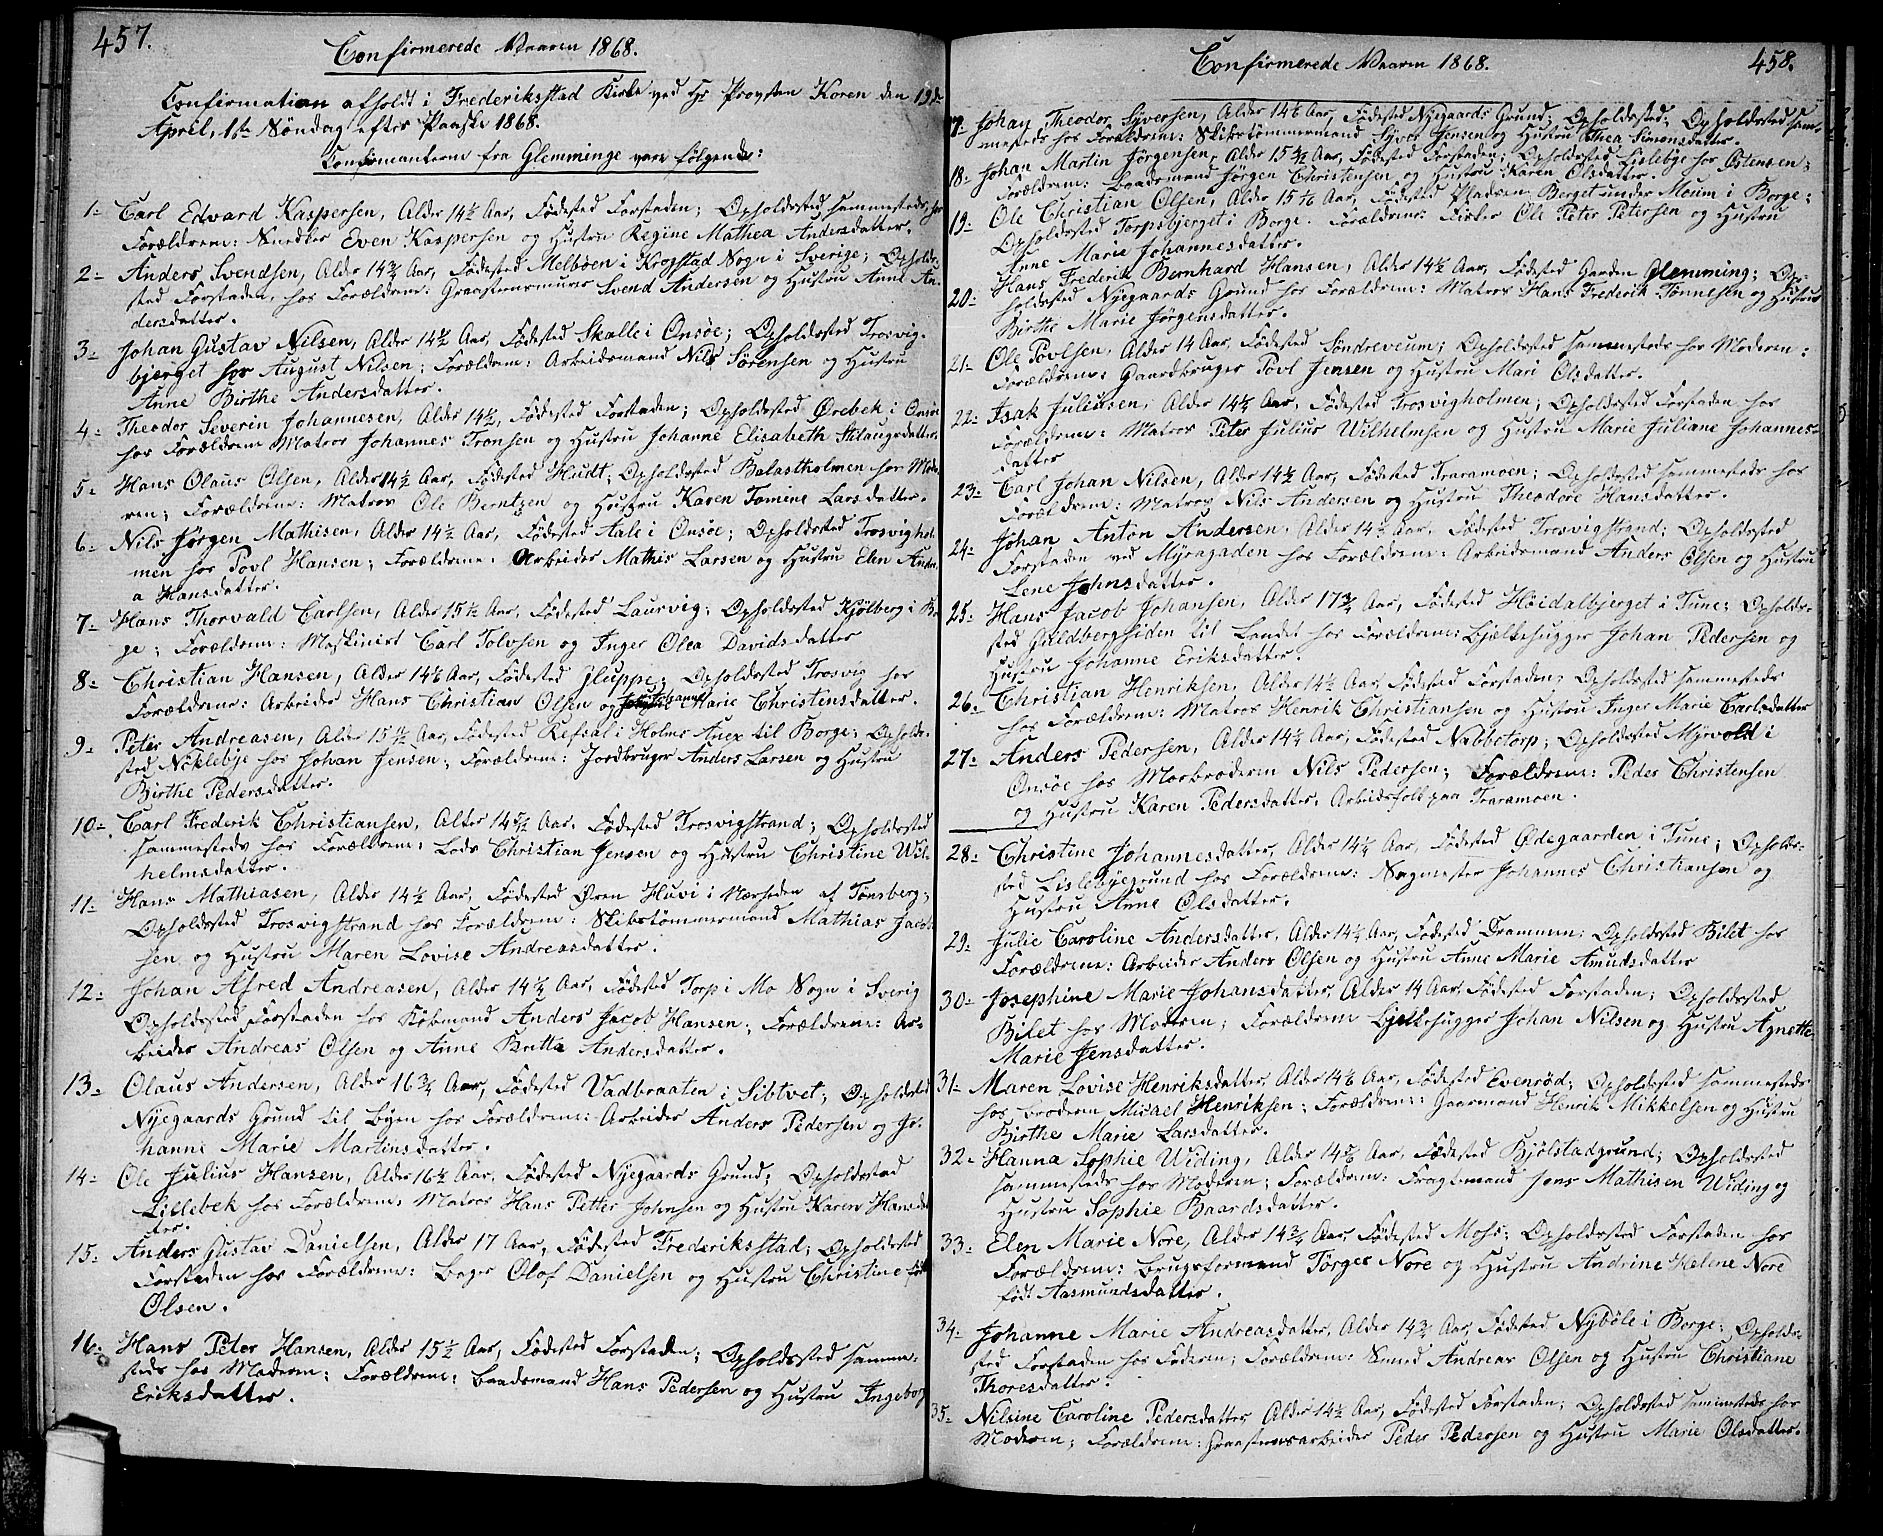 457.
Confirmerede Vaaren 1868.
Confirmation afholdt i Frederiksstad Kirke ved Hr Provsten Koren den 19de
April, 1ste Søndag efter Paaske 1868.
Confirmanterne fra Glemminge vare følgende:
1- Carl Edvard Kaspersen, Alder 14½ Aar, Fødested Forstaden; Opholdssted sammesteds hos
Forældrene: Snedker Even Kaspersen og Hustru Regine Mathea Andersdatter.
2- Anders Svendsen, Alder 14¾ Aar, Fødested Melbøen i Krogstad Sogn i Sverige; Opholds-
sted Forstaden, hos Forældrene: Graastensmurer Svend Andersen og Hustru Anne An-
dersdatter.
3- Johan Gustav Nilsen, Alder 14 Aar, Fødested Skalle i Onsøe; Opholdssted Trosvig-
bjerget hos August Nilsen; Forældrene: Arbeidsmand Nils Sørensen og Hustru
Anne Birthe Andersdatter.
4- Theodor Severin Johannesen, Alder 14½, Fødested Forstaden; Opholdssted Ørebek i Onsøe
hos Forældrene Matros Johannes Tronsen og Hustru Johanne Elisabeth Aslaugsdatter.
5- Hans Olaus Olsen, Alder 14½ Aar, Fødested Hudt; Opholdssted Balastholmen hos Mode-
ren; Forældrene: Matros Ole Berntzen og Hustru Karen Tomine Larsdatter.
6- Nils Jørgen Mathisen, Alder 14½ Aar, Fødested Aale i Onsøe; Opholdssted Trosvighol-
men hos Povl Hansen; Forældrene: Arbeider Mathis Larsen og Hustru Elen Andre-
a Hansdatter.
7- Hans Thorvald Carlsen, Alder 15½ Aar, Fødested Laurvig; Opholdssted Kjølberg i Bor-
ge; Forældrene: Maskinist Carl Tolvsen og Inger Olea Davidsdatter
8- Christian Hansen, Alder 14 Aar, Fødested Gluppe; Opholdssted Trosvig hos
Forældrene: Arbeider Hans Christian Olsen og Hustru Johanne Marie Christensdatter.
9- Peter Andreasen, Alder 15 Aar, Fødested Refsal i Holms Anex til Borge; Opholds-
sted Neklebje hos Johan Jensen; Forældrene: Jordbruger Anders Larsen og Hustru
Birthe Pedersdatter.
10- Carl Frederik Christiansen, Alter 14 Aar, Fødested Trosvigstrand; Opholdssted
sammesteds hos Forældrene: Lods Christian Jensen og Hustru Christine Wil-
helmsdatter.
11- Hans Mathiasen, Alder 14½ Aar, Fødested Øren Huvi i Nærheden af Tønsberg;
Opholdssted Trosvigstrand hos Forældrene: Skibstømmermand Mathias Jacob-
sen og Hustru Maren Lovise Andreasdatter.
12- Johan Alfred Andreasen, Alder 14½ Aar, Fødested Torp i Mo Sogn i Sverig
Opholdssted Forstaden hos Kjøbmand Anders Jacob Hansen; Forældrene: Ar-
beider Andreas Olsen og Anne Britta Andersdatter.
13- Olaus Andersen, Alder 16¾ Aar, Fødested Vadbraaten i Sibtvet; Opholdssted
Nyegaards Grund til Byen hos Forældrene: Arbeider Anders Pedersen og Jo-
hanne Marie Martinsdatter.
14- Ole Julius Hansen, Alder 16½ Aar, Fødested Nyegaards Grund; Opholdsstad
Lillebek hos Forældrene, Matros Hans Petter Johnsen og Hustru Karen Hansdat-
ter.
15- Anders Gustav Danielsen, Alder 17 Aar, Fødested Frederiksstad; Opholdssted
Forstaden hos Forældrene: Bager Olof Danielsen og Hustru Christine født
Olsen.
16- Hans Peter Hansen, Alder 15½ Aar, Fødested Forstaden; Opholdssted samme-
steds hos Moderen; Forældrene: Baadsmand Hans Pedersen og Hustru Ingeborg
Eriksdatter.
Confirmerede Vaaren 1868.
458.
17- Johan Theodor Syversen, Alder 14 Aar, Fødested Nyegaards Grund; Opholdssted; Opholdssted sam-
mesteds hos Forældrene: Skibstømmermand Syver Jensen og Hustru Thea Simonsdatter.
18- Johan Martin Jørgensen, Alder 15 Aar, Fødested Forstaden; Opholdssted Lislebye hos Ostensen;
Forældrene: Baadsmand Jørgen Christensen og Hustru Karen Olsdatter.
19- Ole Christian Olsen, Alder 15 Aar, Fødested Pladsen Berget under Moum i Borge;
Opholdssted Torpsbjerget i Borge. Forældrene: Fisker Ole Peter Petersen og Hustru
Anne Marie Johannesdatter.
20- Hans Frederik Bernhard Hansen, Alder 14½ Aar, Fødested Gaarden Glemming; Op-
holdssted Nyegaards Grund hos Forældrene: Matros Hans Frederik Tønnesen og Hustru
Birthe Marie Jørgensdatter.
21- Ole Povlsen, Alder 14 Aar, Fødested Søndreveum; Opholdssted sammesteds hos Moderen;
Forældrene: Gaardbruger Povl Jensen og Hustru Mari Olsdatter.
22- Isak Juliusen, Alder 14½ Aar, Fødested Trosvigholmen; Opholdssted Forstaden hos
Forældrene: Matros Peter Julius Wilhelmsen og Hustru Marie Juliane Johannes-
datter
23- Carl Johan Nilsen, Alder 14½ Aar, Fødested Traramoen; Opholdssted sammesteds hos
Forældrene: Matros Nils Andersen og Hustru Theodore Hansdatter.
24- Johan Anton Andersen, Alder 14½ Aar, Fødested Trosvigstrand; Opholdssted
Forstaden ved Myragaden hos Forældrene: Arbeidsmand Anders Olsen og Hustru
Lene Johnsdatter.
25- Hans Jacob Johansen, Alder 17¾ Aar, Fødested Høidalbjerget i Tune; Opholds-
sted Guldbergsiden til Landet hos Forældrene: Bjælkehugger Johan Pedersen og
Hustru Johanne Eriksdatter.
26- Christian Henriksen, Alder 14½ Aar, Fødested Forstaden; Opholdssted sammesteds
hos Forældrene: Matros Henrik Christiansen og Hustru Inger Marie Carlsdatter
27- Anders Pedersen, Alder 14½ Aar, Fødested Nabbetorp; Opholdssted Myrvold i
Onsøe hos Morbroderen Nils Pedersen; Forældrene: Peder Christensen
og Hustru Karen Pedersdatter, Arbeidsfolk paa Traramoen.
28- Christine Johannesdatter, Alder 14½ Aar, Fødested Ødegaarden i Tune; Opholds-
sted Lislebyegrund hos Forældrene: Sagmester Johannes Christiansen og
Hustru Anne Olsdatter.
29- Julie Caroline Andersdatter, Alder 14½ Aar, Fødested Drammen; Opholdssted Bilet hos
Forældrene: Arbeider Anders Olsen og Hustru Anne Marie Amundsdatter
30- Josephine Marie Johansdatter, Alder 14 Aar, Fødested Forstaden; Opholdssted
Bilet hos Moderen; Forældrene Bjelkehugger Johan Nilsen og Hustru Agnette
Marie Jensdatter.
31- Maren Lovise Henriksdatter, Alder 14 Aar, Fødested Evenrød; Opholdssted sammesteds
hos Broderen Micael Henriksen; Forældrene: Gaarmand Henrik Mikkelsen og Hustru
Birthe Marie Larsdatter.
32- Hanna Sophie Widing, Alder 14 Aar, Fødested Kjølstadgrund; Opholdssted
sammesteds hos Moderen; Forældrene: Fragtemand Jens Mathisen Widing og
Hustru Sophie Baardsdatter.
33- Elen Marie Nore, Alder 14¾ Aar, Fødested Mohs; Opholdssted Forstaden hos
Forældrene: Brugsformand Tørger Nore og Hustru Andrine Helene Nore
født Aasmundsdatter.
34- Johanne Marie Andreasdatter, Alder 14¾ Aar, Fødested Nybøle i Borge; Opholds-
sted Forstaden hos Faderen; Forældrene: Smed Andreas Olsen og Hustru Christiane
Thoresdatter.
35- Nilsine Caroline Pedersdatter, Alder 14½ Aar, Fødested Forstaden; Opholdssted sammesteds hos
Moderen; Forældrene: Graastensarbeider Peder Pedersen og Hustru Marie Olsdatter.